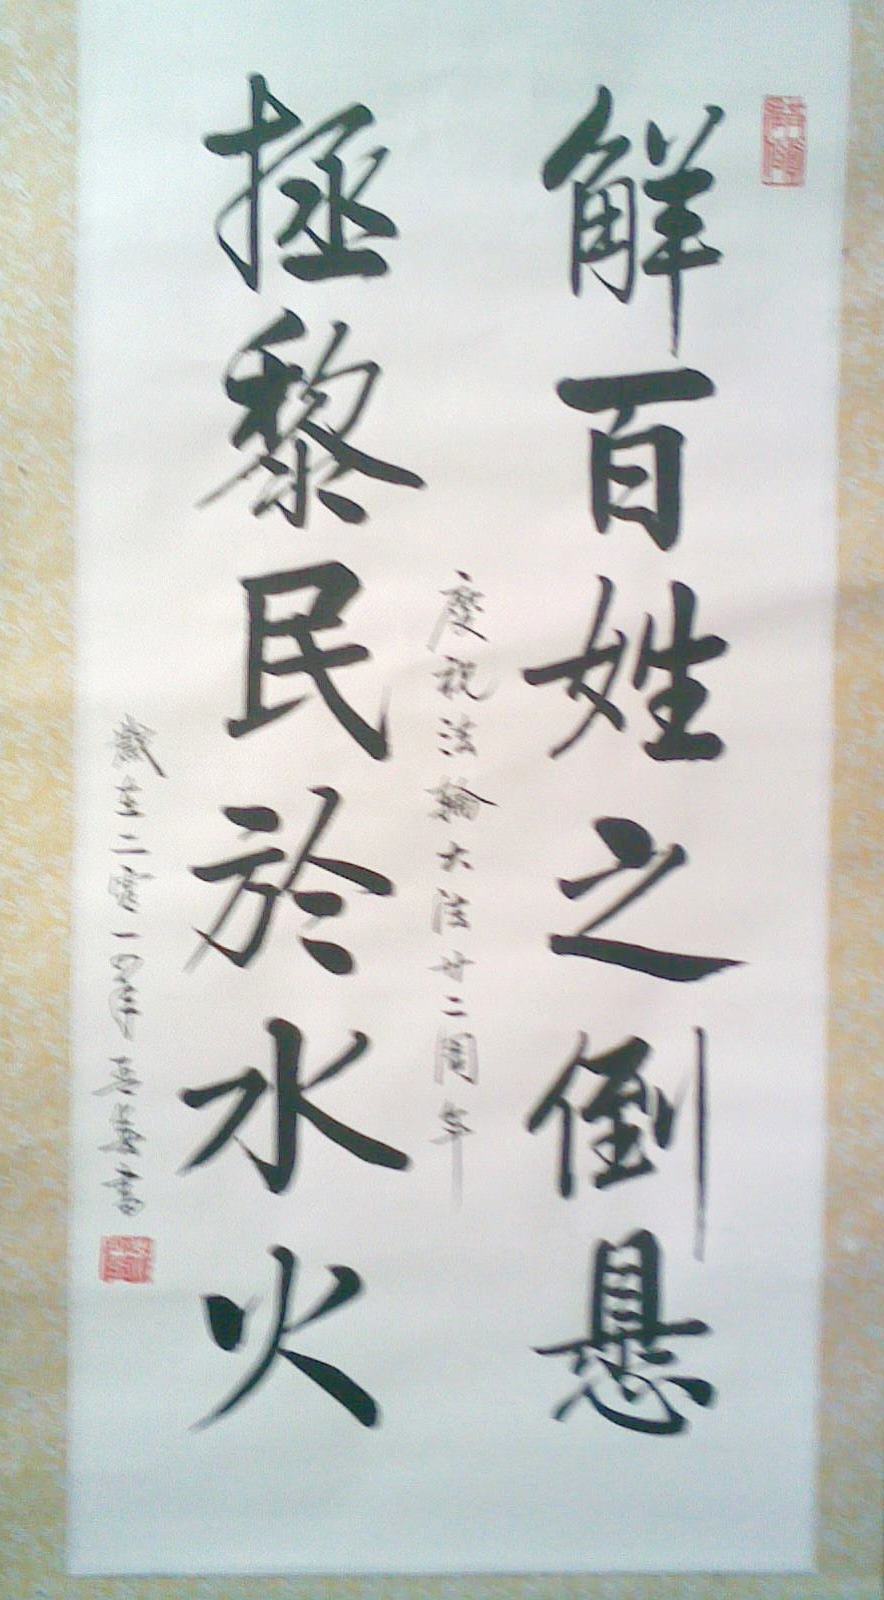 解百姓之倒悬
慶祝法輪大法廿二周年
拯黎民於水火
歲在二零一四年
書